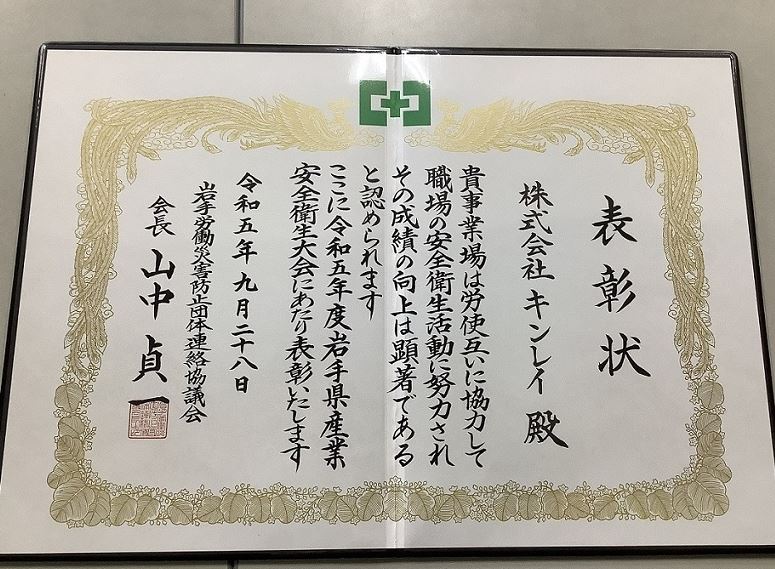 表彰状
株式会社 キンレイ 殿
貴事業場は労使互いに協力して
職場の安全衛生活動に努力され
その成績の向上は顕著である
と認められます
ここに令和五年度岩手県産業
安全衛生大会にあたり表彰いたします
令和五年九月二十八日
岩手労働災害防止団体連絡協議会
会長 山中貞一